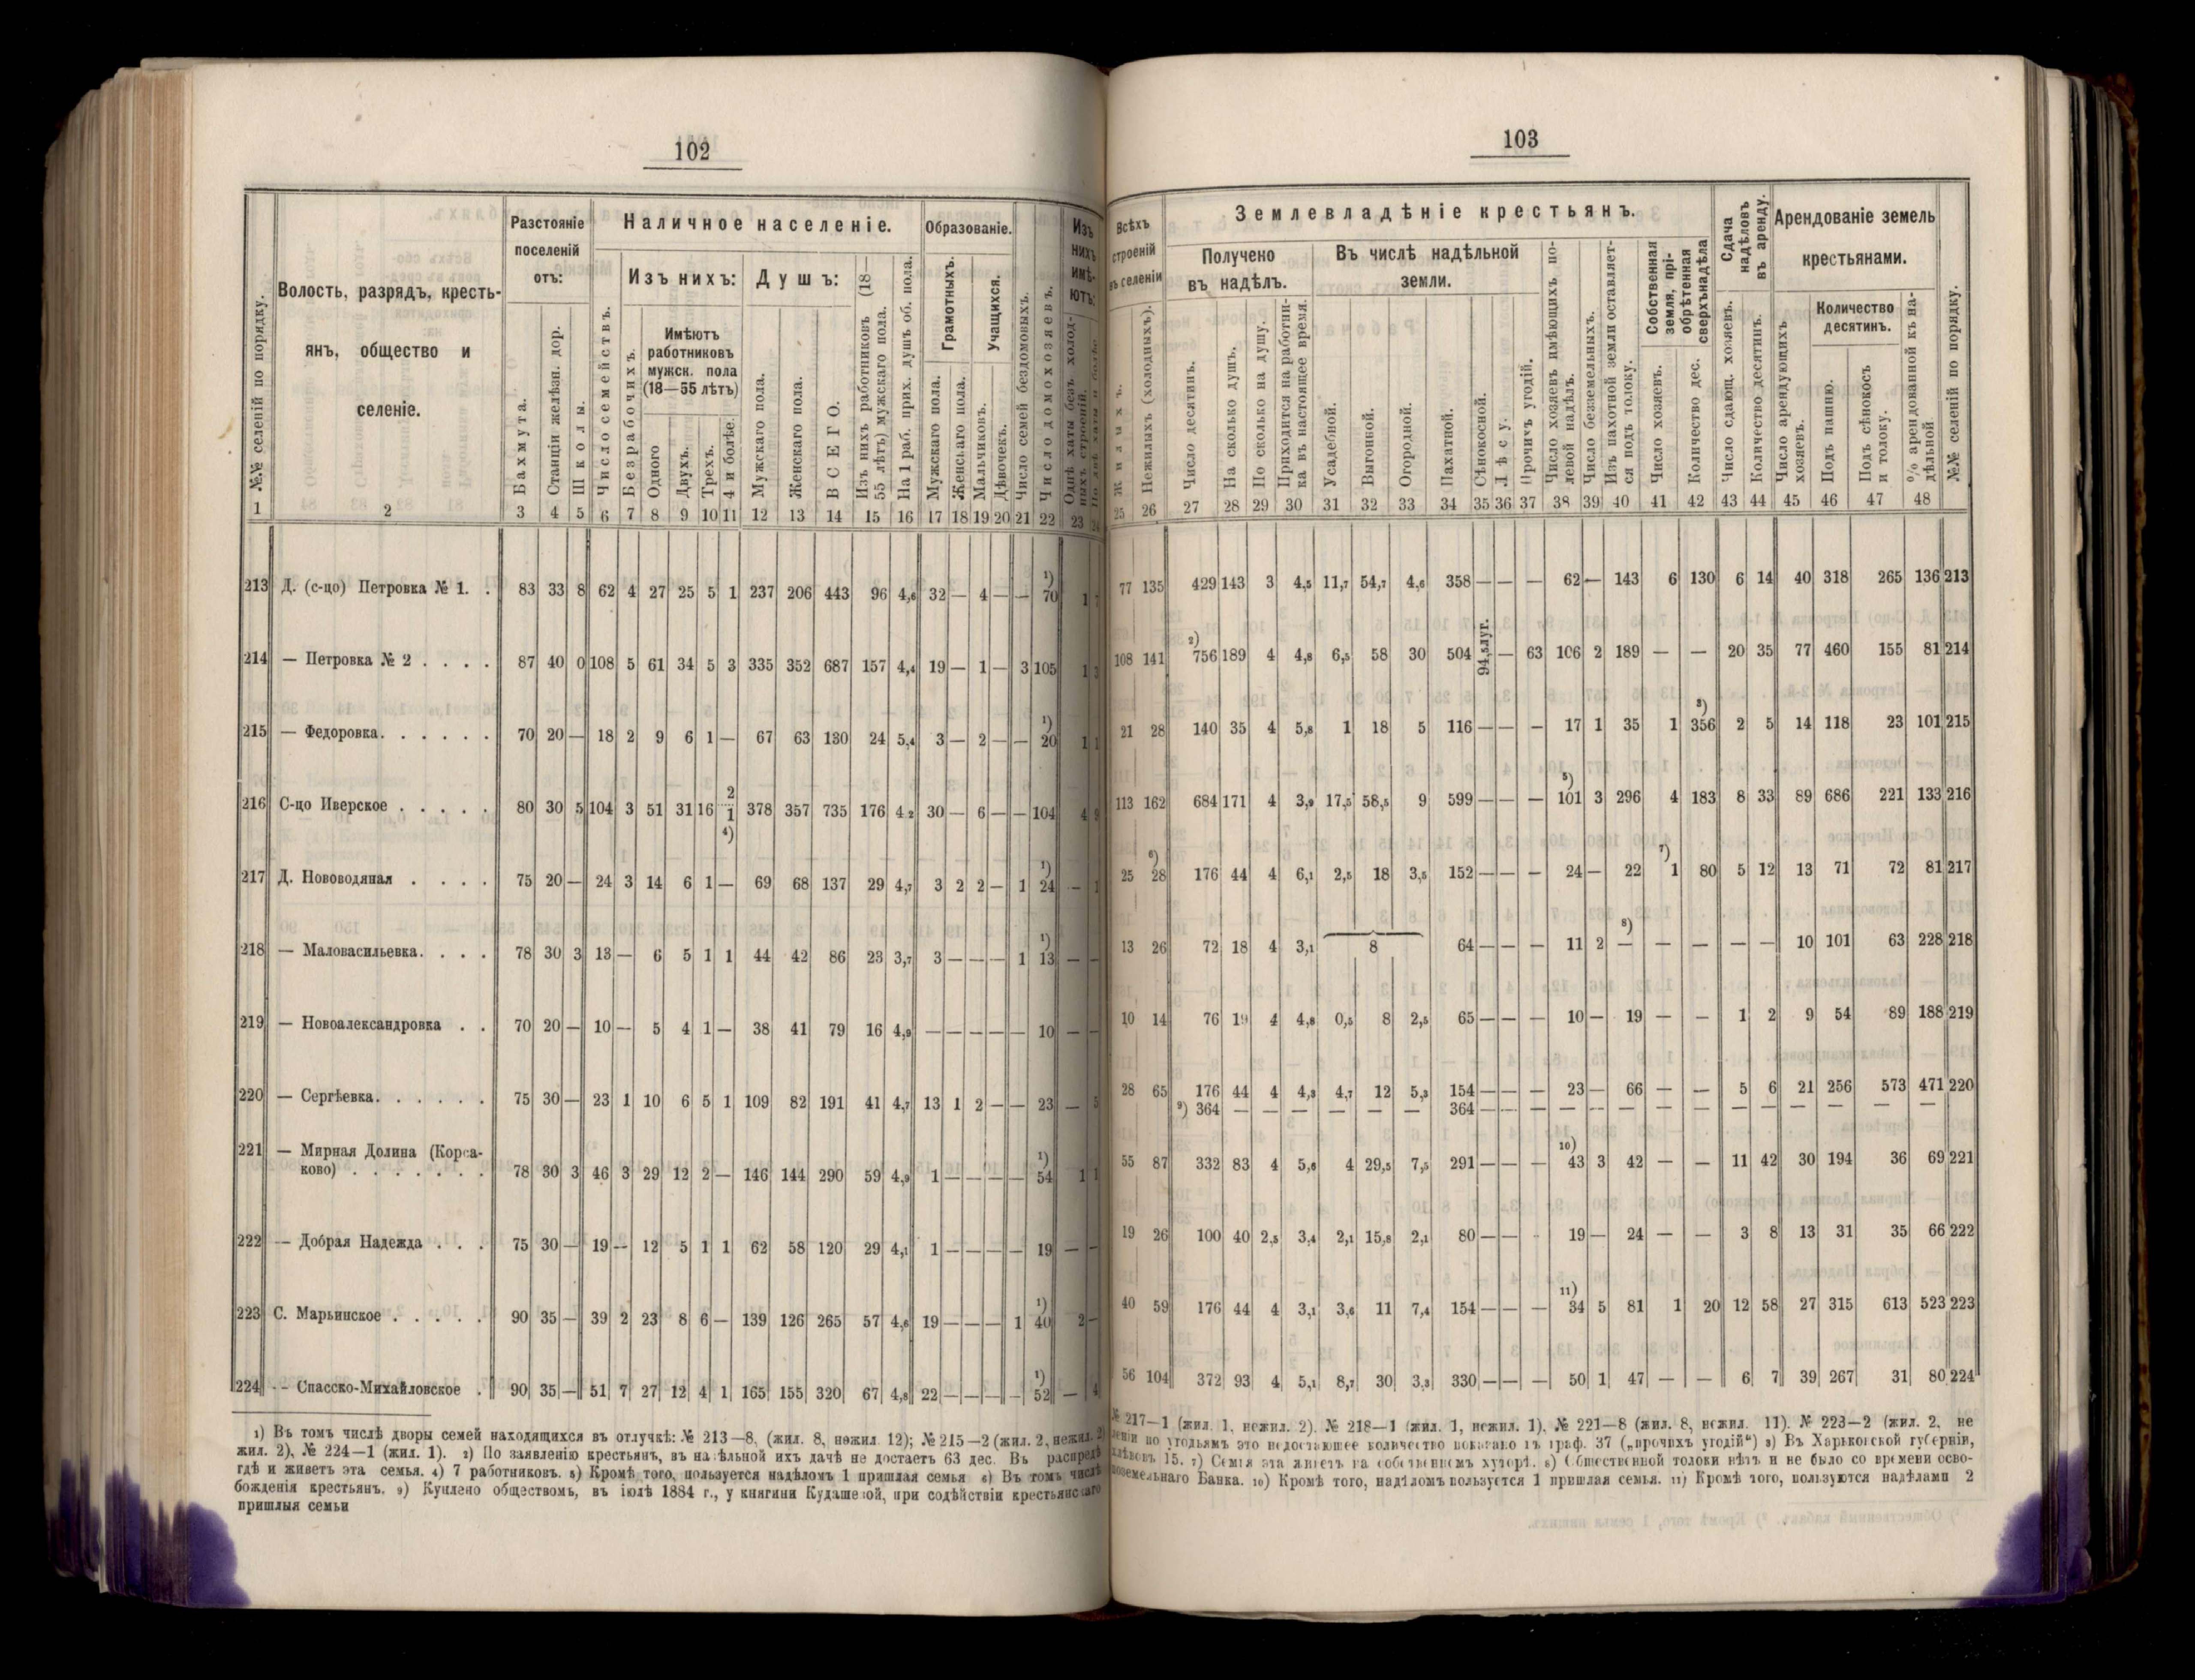 102
№№ селеній по порядку.
Волость, разрядъ, кресть-
янъ, общество и
селеніе.
Разстояніе
поселеній
отъ:
Бахмута.
Станціи желѣзн. дор.
Школы.
Наличное населеніе.
Число семействъ.
Изъ нихъ:
Безрабочихъ.
Имѣютъ
работниковъ
мужск. пола
(18—55 лѣтъ)
Одного
Двухъ.
Трехъ.
4 и болѣе.
Душъ:
Мужскаго пола.
Женскаго пола.
ВСЕГО.
Изъ нихъ работниковъ (18—
55 лѣтъ) мужскаго пола.
На 1 раб. прих. душъ об. пола.
Образованіе.
Грамотныхъ.
Мужскаго пола.
Женскаго пола.
Учащихся.
Мальчиковъ.
Дѣвочекъ.
Число семей бездомовыхъ.
Число домохозяевъ.
Изъ
нихъ
имѣ-
ютъ:
Однѣ хаты безъ холод-
ныхъ строеній.
1 2 3 4 5 6 7 8 9 10 11 12 13 14 15 16 17 18 19 20 21 22 23 24
213 Д. (с-цо) Петровка № 1. . 83 33 8 62 4 27 25 5 1 237 206 443 96 4,6 32 — 4 — — ¹) 70 1 7
214 — Петровка № 2 . . . . 87 40 0 108 5 61 34 5 3 335 352 687 157 4,4 19 — 1 — 3 105 1 3
215 — Федоровка. . . . . . 70 20 — 18 2 9 6 1 — 67 63 130 24 5,4 3 — 2 — — ¹) 20 1 1
216 С-цо Иверское . . . . . 80 30 5 104 3 51 31 16 2 1 ⁴) 378 357 735 176 4,2 30 — 6 — — 104 4 9
217 Д. Нововодяная . . . . 75 20 — 24 3 14 6 1 — 69 68 137 29 4,7 3 2 2 — 1 ¹) 24 — 1
218 — Маловасильевка. . . . 78 30 3 13 — 6 5 1 1 44 42 86 23 3,7 3 — — — 1 ¹) 13 — —
219 — Новоалександровка . . 70 20 — 10 — 5 4 1 — 38 41 79 16 4,9 — — — — — 10 — —
220 — Сергѣевка. . . . . . 75 30 — 23 1 10 6 5 1 109 82 191 41 4,7 13 1 2 — — 23 — 5
221 — Мирная Долина (Корса-
ково) . . . . . . . 78 30 3 46 3 29 12 2 — 146 144 290 59 4,9 1 — — — — ¹) 54 1 1
222 — Добрая Надежда . . . 75 30 — 19 — 12 5 1 1 62 58 120 29 4,1 1 — — — — 19 — —
223 С. Марьинское . . . . . 90 35 — 39 2 23 8 6 — 139 126 265 57 4,6 19 — — — 1 ¹) 40 2 —
224 — Спасско-Михайловское . 90 35 — 51 7 27 12 4 1 165 155 320 67 4,8 22 — — — — ¹) 52 — 4
1) Въ томъ числѣ дворы семей находящихся въ отлучкѣ: № 213—8, (жил. 8, нежил. 12); № 215—2 (жил. 2, нежил. 2)
жил. 2), № 224—1 (жил. 1). 2) По заявленію крестьянъ, въ надѣльной ихъ дачѣ не достаетъ 63 дес. Въ распредѣ
гдѣ и живетъ эта семья. 4) 7 работниковъ. 5) Кромѣ того, пользуется надѣломъ 1 пришлая семья 6) Въ томъ числѣ
божденія крестьянъ. 9) Куплено обществомъ, въ іюлѣ 1884 г., у княгини Кудашевой, при содѣйствіи крестьянскаго
пришлыя семьи
103
Всѣхъ
строеній
въ селеніи
Жилыхъ.
Нежилыхъ (холодныхъ).
Землевладѣніе крестьянъ.
Получено
въ надѣлъ.
Число десятинъ.
На сколько душъ.
По сколько на душу.
Приходится на работни-
ка въ настоящее время.
Въ числѣ надѣльной
земли.
Усадебной.
Выгонной.
Огородной.
Пахатной.
Сѣнокосной.
Лѣсу.
Прочихъ угодій.
Число хозяевъ имѣющихъ по-
левой надѣлъ.
Число безземельныхъ.
Изъ пахотной земли оставляет-
ся подъ толоку.
Собственная
земля, прі-
обрѣтенная
сверхънадѣла
Число хозяевъ.
Количество дес.
Сдача
надѣловъ
въ аренду.
Число сдающ. хозяевъ.
Количество десятинъ.
Арендованіе земель
крестьянами.
Число арендующихъ
хозяевъ.
Количество
десятинъ.
Подъ пашню.
Подъ сѣнокосъ
и толоку.
% арендованной къ на-
дѣльной
№№ селеній по порядку.
25 26 27 28 29 30 31 32 33 34 35 36 37 38 39 40 41 42 43 44 45 46 47 48
77 135 429 143 3 4,5 11,7 54,7 4,6 358 — — — 62 — 143 6 130 6 14 40 318 265 136 213
108 141 ²) 756 189 4 4,8 6,5 58 30 504 94,5 луг. — 63 106 2 189 — — 20 35 77 460 155 81 214
21 28 140 35 4 5,8 1 18 5 116 — — — 17 1 35 1 ³) 356 2 5 14 118 23 101 215
113 162 684 171 4 3,9 17,5 58,5 9 599 — — — ⁵) 101 3 296 4 183 8 33 89 686 221 133 216
25 ⁶) 28 176 44 4 6,1 2,5 18 3,5 152 — — — 24 — 22 ⁷) 1 80 5 12 13 71 72 81 217
13 26 72 18 4 3,1 8 64 — — — 11 2 ⁸) — — — — — 10 101 63 228 218
10 14 76 19 4 4,8 0,5 8 2,5 65 — — — 10 — 19 — — 1 2 9 54 89 188 219
28 65 176 44 4 4,3 4,7 12 5,3 154 — — — 23 — 66 — — 5 6 21 256 573 471 220
⁹) 364 — — — — — — 364 — — — — — — — — — — — — — —
55 87 332 83 4 5,6 4 29,5 7,5 291 — — — ¹⁰) 43 3 42 — — 11 42 30 194 36 69 221
19 26 100 40 2,5 3,4 2,1 15,8 2,1 80 — — - 19 — 24 — — 3 8 13 31 35 66 222
40 59 176 44 4 3,1 3,6 11 7,4 154 — — — ¹¹) 34 5 81 1 20 12 58 27 315 613 523 223
56 104 372 93 4 5,1 8,7 30 3,3 330 — — — 50 1 47 — — 6 7 39 267 31 80 224
№ 217—1 (жил. 1, нежил. 2). № 218—1 (жил. 1, нежил. 1), № 221—8 (жил. 8, нежил. 11). № 223—2 (жил. 2, не
леніи по угодьямъ это недостающее количество показано въ граф. 37 („прочихъ угодій“) 3) Въ Харьковской губерніи,
хлѣвовъ 15. 7) Семія эта живетъ на собственномъ хуторѣ. 8) Общественной толоки нѣтъ и не было со времени осво-
поземельнаго Банка. 10) Кромѣ того, надѣломъ пользуется 1 пришлая семья. 11) Кромѣ того, пользуются надѣлами 2